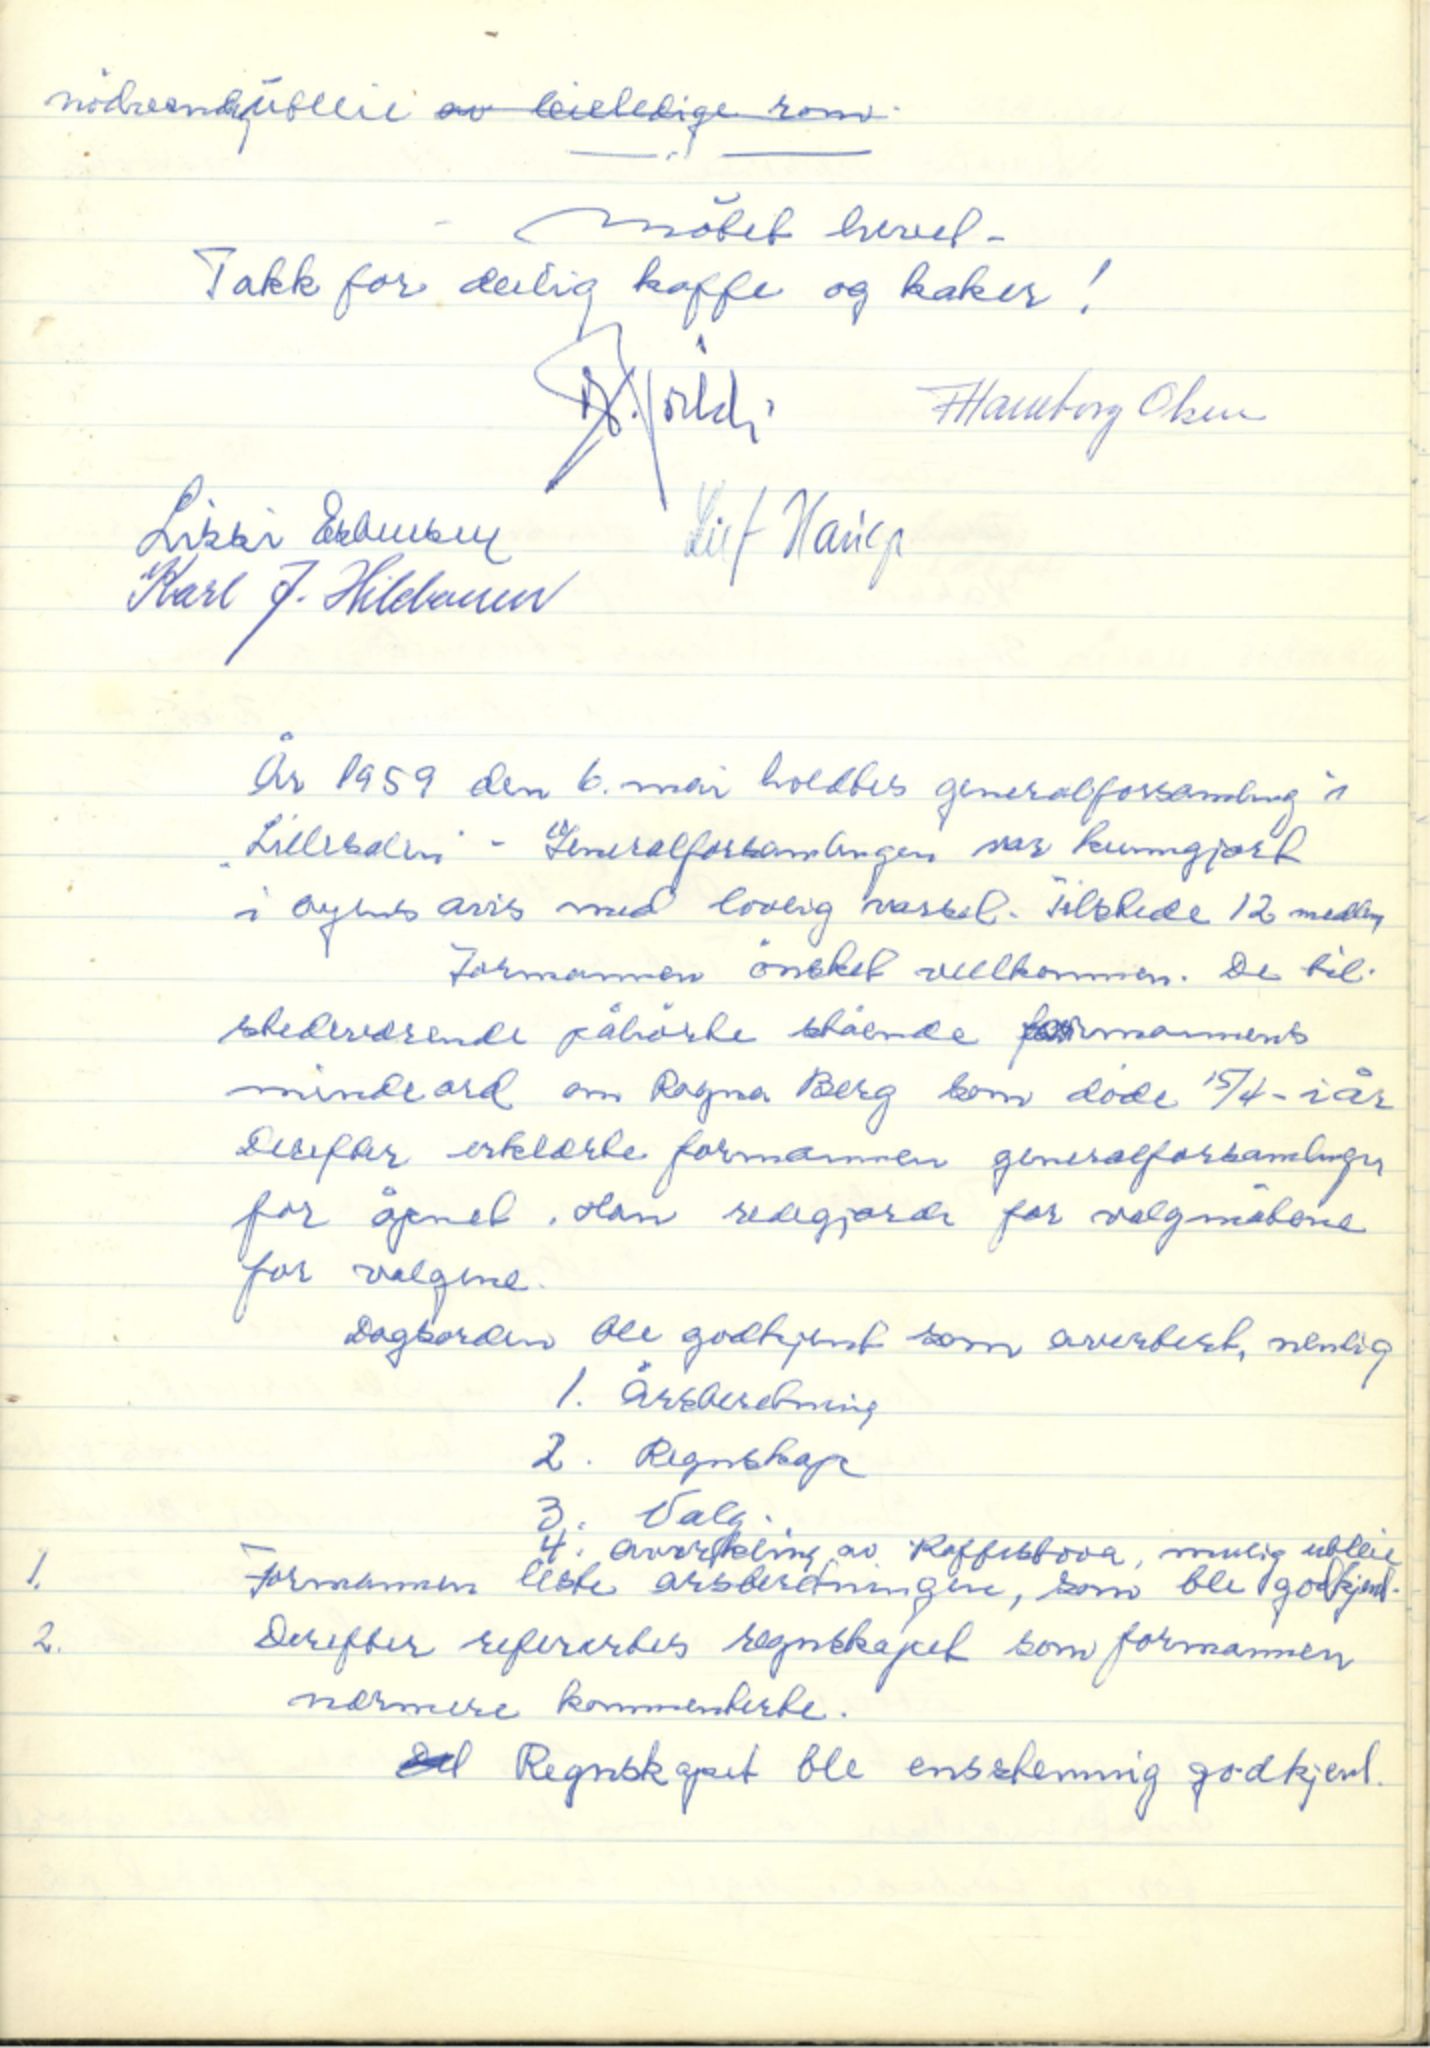 nödvendig utleie av leieledige rom.
Mötet hevet -
Takk for deilig kaffe og kaker!
Hamborg Olsen
Lissi Esbensen Leif Haug
Karl J. Hildonen
År 1959 den 6. mai holdtes generalforsamling i
"Lillesalen" - Generalforsamlingen var kunngjort
i byens avis med lovlig varsel. Tilstede 12 medlem
Formannen önsket velkommen. De til-
stedeværende påhörte stående formannens
minde ord om Ragna Berg som döde 15/4 - i år
Derefter erklærte formannen generalforsamlingen
for åpnet. Han redegjorde for valgmåtene
for valgene.
Dagsorden ble godkjent som avertert, nemlig
1. Årsberetning
2. Regnskap
3. Valg.
4. Avvikling av Kaffestova, mulig utleie
1. Formannen leste årsberetningene, som ble godkjent.
2. Derefter refertes regnskapet som formannen
nærmere kommenterte.
Regnskapet ble enstemmig godkjent.